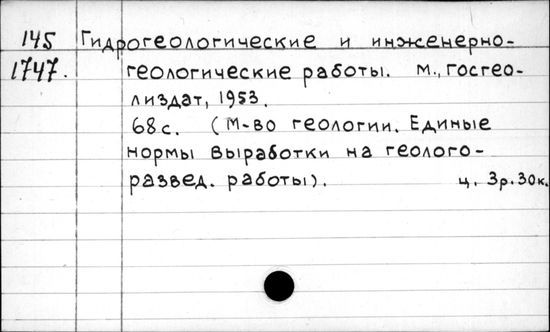 145 Гидрогеологические и инженерно-
1747. геологические работы. М., Госгео-
лиздат, 1953.
68с. (М-во геологии. Единые
нормы выработки на геолого-
развед. работы). ц. 3р.30к.